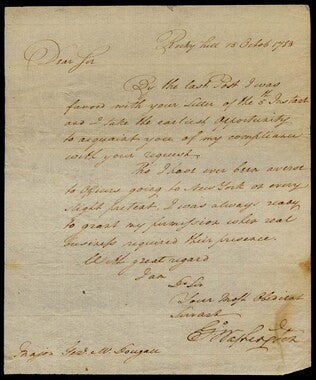 Rocky hill 13 Octob 1783
Dear Sir
By the last Post I was
favored with your Letter of the 6th Instant
and I take the earliest opportunity
to acquaint you of my compliance
with your request.
Tho I have ever been averse
to Officers going to New York on every
slight pretext, I was always ready
to grant my permission when real
business required their presence.
With great regard
I am
Dr Sir
Your Most Obedient
Servant
Go Washington
Major Genl McDougall